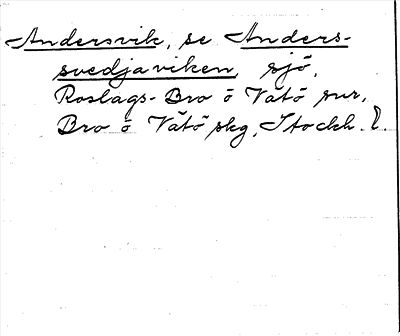 Andersvik, se Anders-
svedjaviken, sjö,
Roslags-Bro o Vätö sur,
Bro o Vätö skg, Stockh. l.